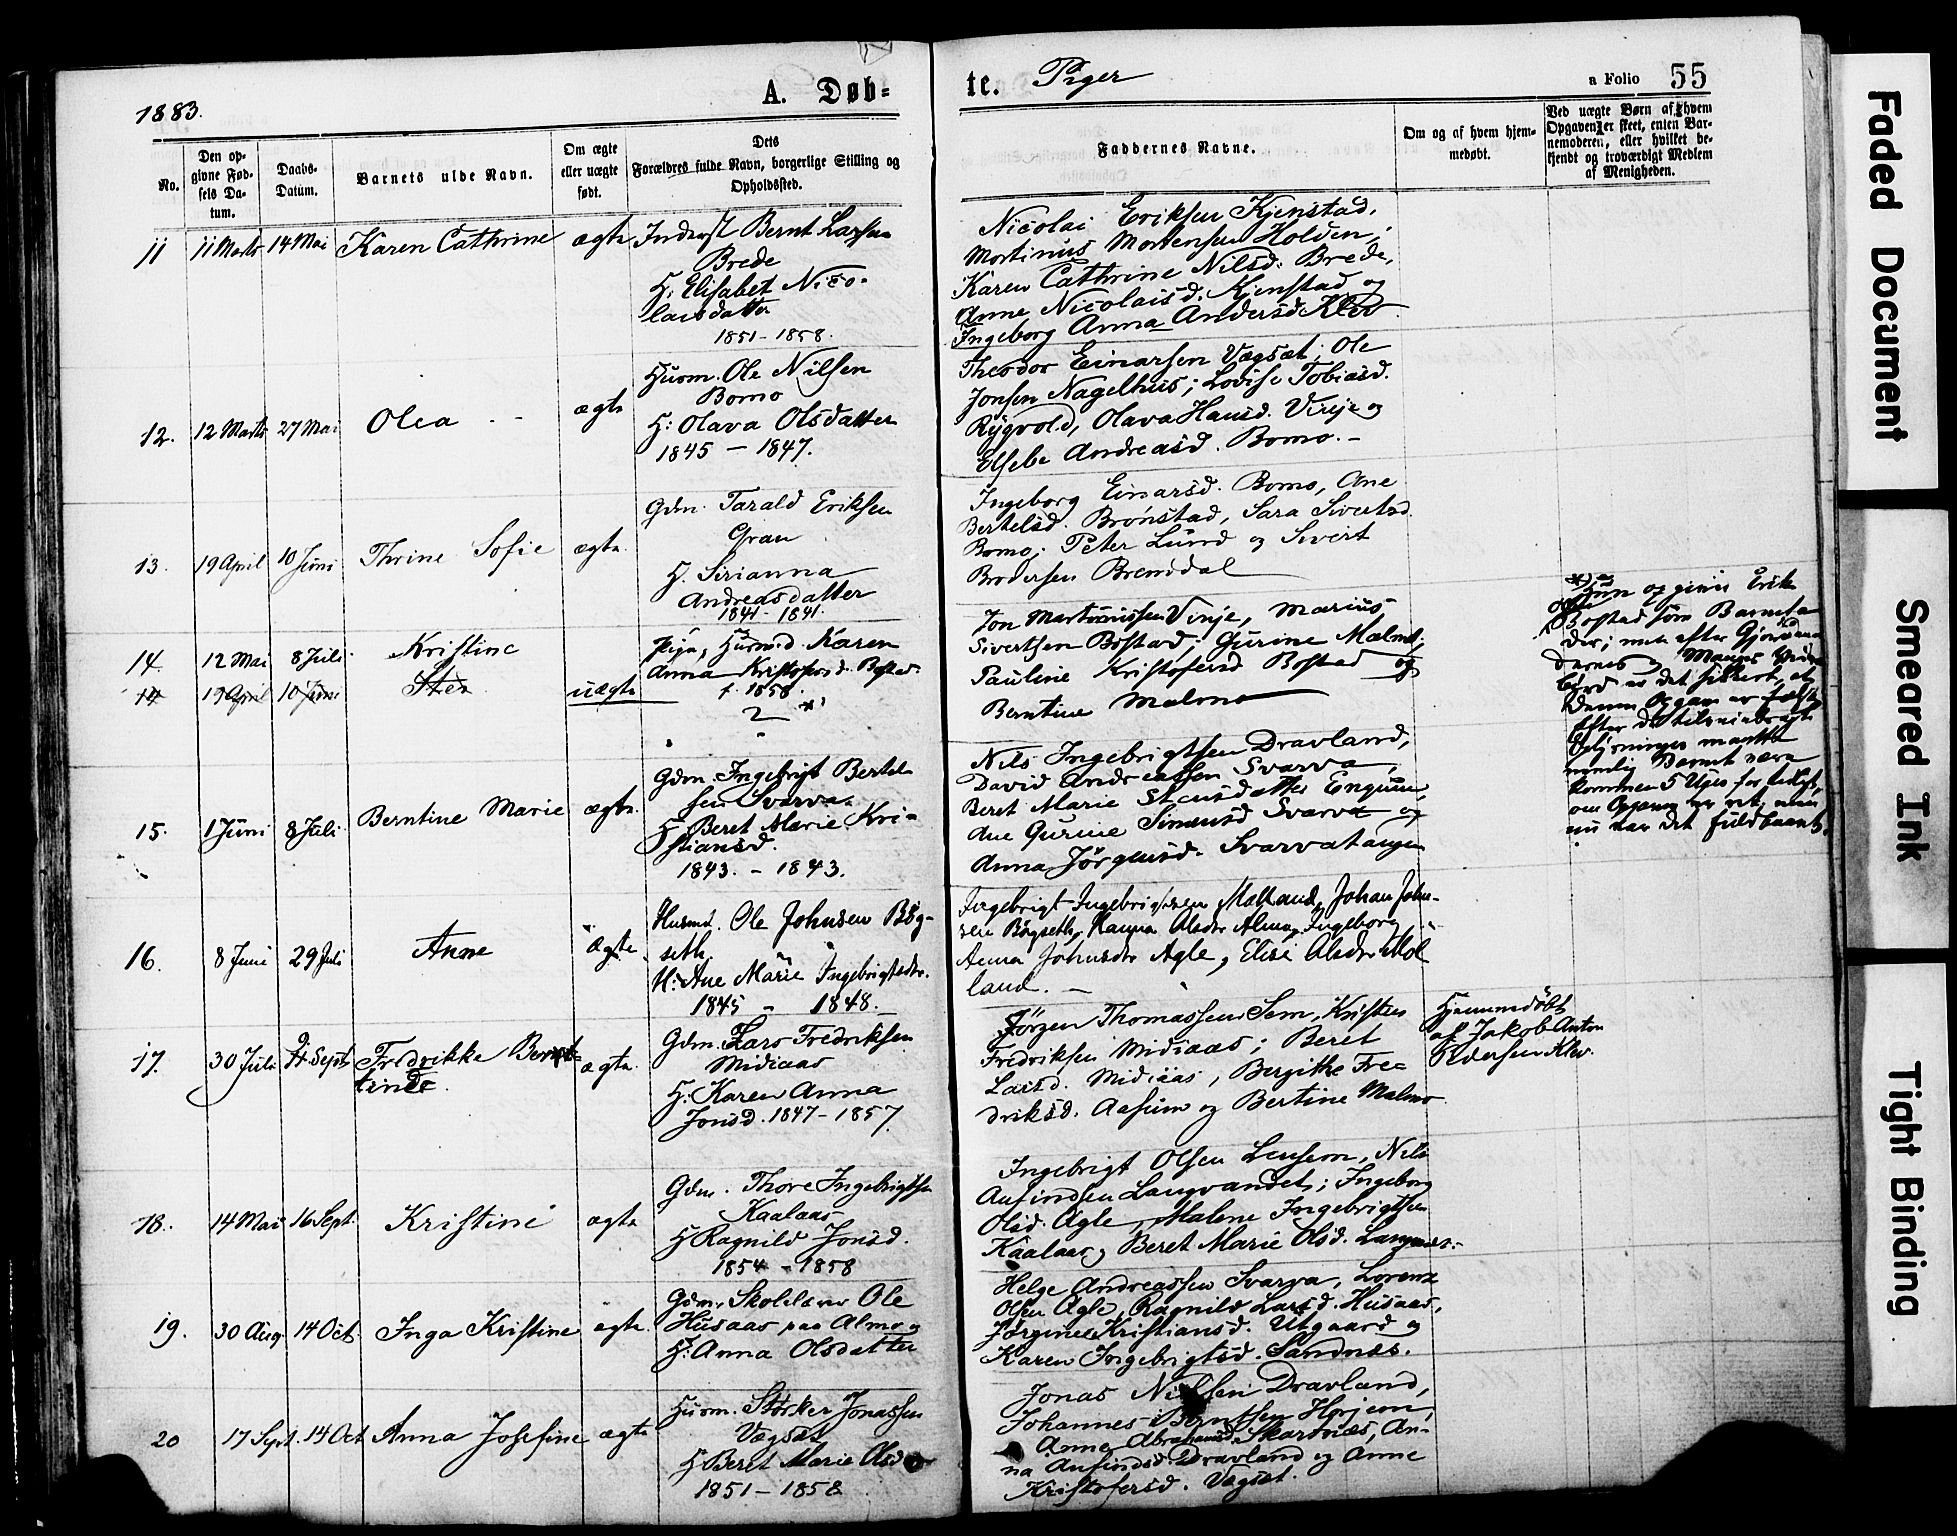 1883.
A. Døb=
te. Piger
a Folio 55
No.
Den op-
givne Fød-
sels Da-
tum.
Daabs-
Datum.
Barnets ulde Navn.
Om ægte
eller uægte
født.
Dets
Forældres fulde Navn, borgerlige Stilling og
Opholdssted.
Faddernes Navne.
Om og af hvem hjem-
medøbt.
Ved uægte Børn af hvem
Opgaven er skeet, enten Bar-
nemoderen, eller hvilket be-
kjendt og troværdigt Medlem
af Menigheden.
11 11 Marts 14 Mai Karen Cathrine ægte
Inderst Bernt Larsen
Brede
H: Elisabet Nico-
laisdatter
1851 - 1858.
Nicolai Eriksen Kjenstad,
Mortinus Mortensen Holden;
Karen Cathrine Nilsd. Brede,
Anne Nicolaisd. Kjenstad og
Ingeborg Anna Andersd. Klev.
12. 12 Marts 27 Mai Olea - ægte
Husm. Ole Nilsen
Bomo
H: Olava Olsdatter
1845 - 1847.
Theodor Einarsen Vægsæt; Ole
Jonsen Nagelhus; Lovise Tobiasd.
Rygvold, Olava Hansd. Vinje og
Elsebe Andreasd. Bomo. -
13. 19 April 10 Juni Thrine Sofie ægte
Gdm. Tarald Eriksen
Gran
H. Sirianna
Andreasdatter
1841 - 1841.
Ingeborg Einarsd. Bomo, Ane
Bertelsd. Brønstad, Sara Sivertsd.
Bomo; Peter Lund og Sivert
Brodersen Bremdal
14. 12 Mai 8 Juli Kristine
14 19 April 10 Juni uægte
Pige, Husmd. Karen
Anna Kristofersd. Bostad.
f. 1858.
2 *)
Jon Martinussen Vinje, Marius
Sivertsen Bostad; Gurine Malmo;
Pauline Kristofersd. Bostad og
Berntine Malmo
*) Hun opgiver Erik
Bostad som Barnefa
der; men efter
dennes og Manges
er det sikkert, at
denne Opgave er falsk
Efter de tilveiebragte
Oplysninger maatte
nemlig Barnet være
kommen 5 Uger for tidligt,
om Opgaven var ret, men
nu var det fuldbaaret.
15. 1 Juni 8 Juli Berntine Marie ægte
Gdm. Ingebrigt Bertel-
sen Svarva
H Beret Marie Kri-
stiansd.
1843. - 1843.
Nils Ingebrigtsen Dravland,
David Andreassen Svarva,
Beret Marie Stensdatter Engum,
Ane Gurine Simensd Svarva og
Anna Jørgensd. Svarvatangen
16. 8 Juni 29 Juli Anne ægte
Husmd. Ole Johnsen Bøg-
seth
H: Ane Marie Ingebrigtsdtr.
1845 - 1848.
Ingebrigt Ingebrigtsen Molland, Johan John-
sen Bøgseth, Hanna Olsdtr Almo, Ingeborg
Anna Johnsdtr Agle, Elise Olsdtr Mol
land. -
17. 30 Juli Sept Fredrikke Bernt-
tine ægte
Gdm. Lars Fredriksen
Midiaas
H: Karen Anna
Jonsd. 1847 - 1857
Jørgen Thomassen Sem, Kristen
Fredriksen Midiaas; Beret
Larsd. Midiaas, Bergithe Fre-
driksd. Aasum og Bertine Malmo
Hjemmedøbt
af Jakob Anton
Pedersen Klev.
18. 14 Mai 16 Sept. Kristine ægte
Gdm. Thore Ingebrigtsen
Kaalaas
H Ragnild Jonsd.
1854 - 1858
Ingebrigt Olsen Lensem, Nils
Anfindsen Langvandet; Ingeborg
Olsd. Agle, Malene Ingebrigtsen
Kaalaas, Beret Marie Olsd.
19. 30 Aug 14 Oct. Inga Kristine ægte
Gdm, Skolelærer Ole
Husaas paa Almo og
H: Anna Olsdatter
Helge Andreassen Svarva, Lorents
Olsen Agle, Ragnild Larsd. Husaas,
Jørgine Kristiansd. Utgaard og
Karen Ingebrigtsd. Sandnæs.
20 17 Sept. 14 Oct Anna Josefine ægte
Husm. Størker Jonassen
Vægsæt
H Beret Marie Olsd
1851 - 1858
Jonas Nilsen Dravland,
Johannes Berntsen Hojem,
Anne Abrahamsd. Skardnæs, An-
na Anfindsd. Dravland og Anne
Kristofersd. Vægsæt.
Faded Document
Smeared Ink
Tight Binding